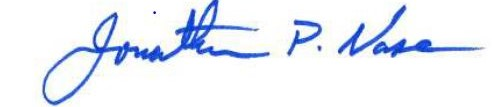 Jonathan P. Nase